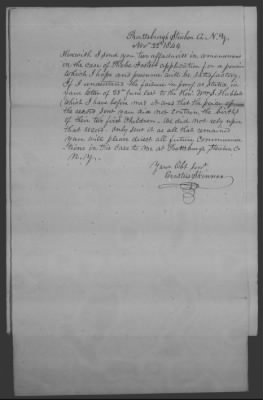 Prattsburgh Steuben Co. N.Y.
Nov 22d 1849
Herewith I send you two affidavits in amendment
in the case of Phebe application for a pension
which I hope and presume will be satisfactory.
If I understand the failure in proof as stated in
your letter of 23d June last to the Hon. Wm S. Hubbell
(which I have before me) it was that the paper
the record sent you did not contain the birth
of their two first children. We did not rely upon
that record. Only sent it as all that remained
You will please direct all future communica
tions in this case to me at Prattsburgh, Steuben Co
N.Y.
Your Obt Servt
Erastus Skinner